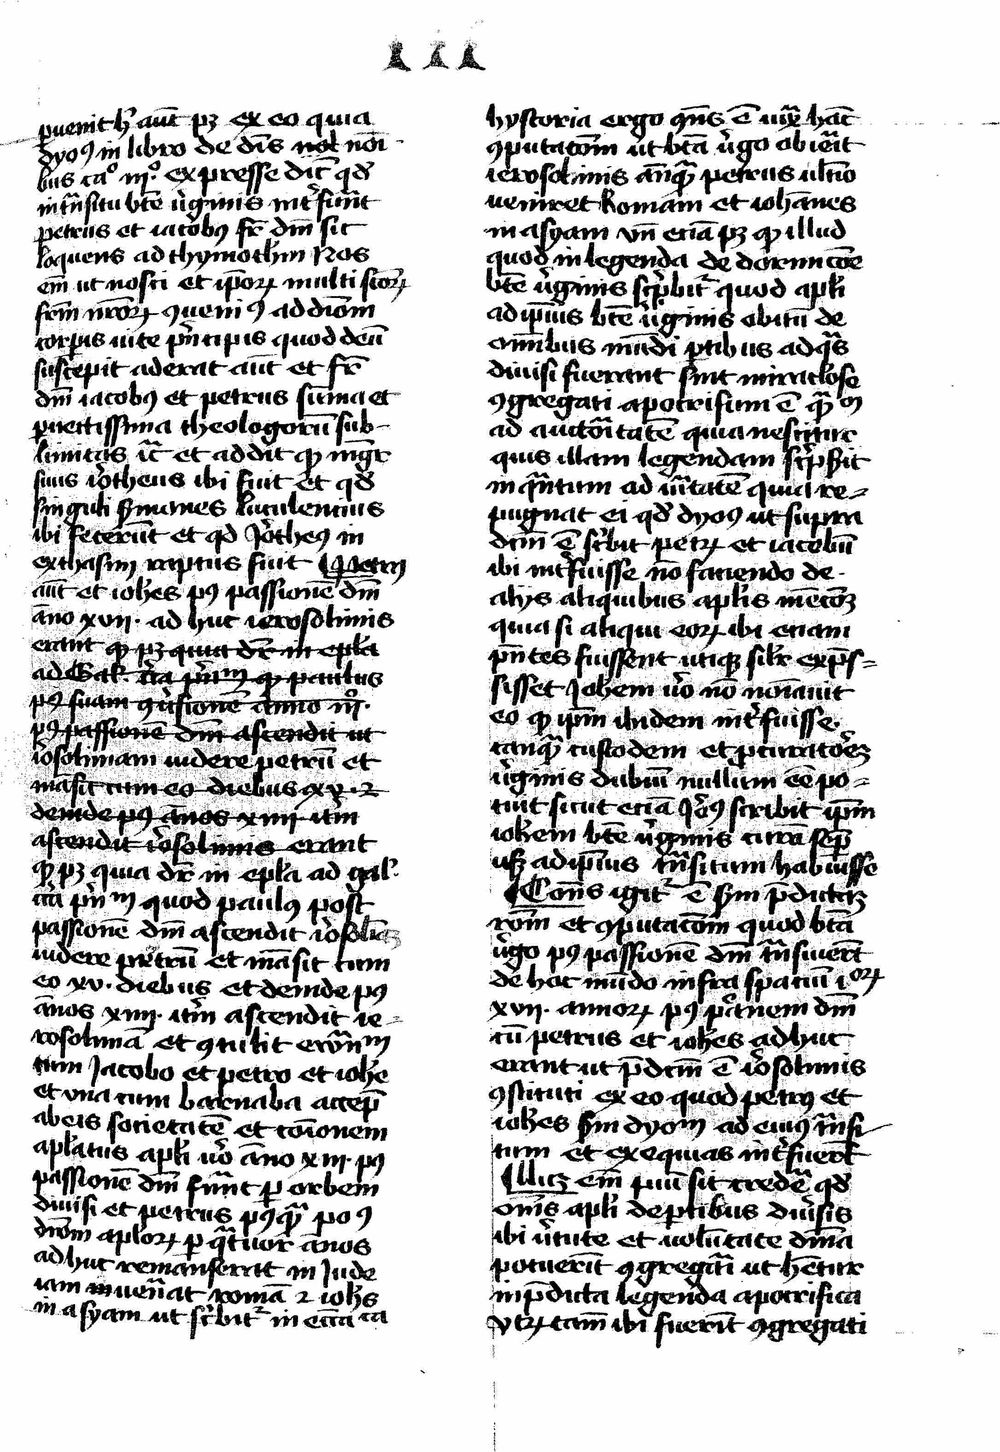 puenit h aut pꝫ ex eo quia
dyoꝰ in libro de dis noī
bus ca° iij° expresse dic qd
in tnsitu bte vginis int fuunt
petrus et iacobꝰ fr dni sic
loquens ad thymotheū Nos
em ut nosti et ipoꝝ multi scoꝝ
frm nroꝝ ꝯuenimꝰ ad diom
corpus uite pncipis quod deū
suscepit aderat aut et fr
dni iacobꝰ et petrus suma et
puectissima theologorū sub-
limitas ic et addit qꝫ mgr
suus Jotheus ibi fuit et qd
singuli smones luculencius
ibi fecerūt et qd Jotheꝰ in
exthasim raptus fuit Petrꝰ
aut et ioħes pꝰ passionē dni
āno xvii. ad huc ierosolimis
erant qꝫ pꝫ quia dr in epla
ad Gal. ca pm° qꝫ paulus
pꝰ suam ꝯusionē anno iii.
pꝰ passionē dni ascendit ut
iosolimam uidere petrū et
māsit cum eo diebus xv. ⁊
deinde pꝰ ānos xiiii itm
ascendit iosolimis erant
qꝫ pꝫ quia dr in epla ad gal.
ca pm° quod paulꝰ post
passionē dni ascendit iosolis
uidere petrū et māsit cum
eo xv. diebus et deinde pꝰ
ānos xiiii. itm ascendit ie-
rosolimā et ꝯtulit euanm
cum Jacobo et petro et ioħe
et vna cum barnaba accep
ab eis societatē et cōionem
aplatus apli vo āno xiii. pꝰ
passionē dni funt p orbem
diuisi et petrus pꝰqꝫ po ꝰ
dnom aploꝝ p qtuor ānos
ad huc remanserat in Jude
iam in uenat romā ⁊ ioħs
in asyam ut scbit in ecca ca
hystoria ergo qns ē iux hac
ꝯputacom ut bta vgo obieit
ierosolimis anqꝫ petrus ultio
ueniret Romam et iohānes
in asyam vn eciā pꝫ qꝫ illud
quod in legenda de dormicoe
bte vginis scbit quod apli
ad ipius bte vginis obitū de
omibus mūdi ptibus ad qs
diuisi fuerant sint miraclose
ꝯgregati apocrifum ē qm
ad auctoitatē quia nescitur
quis illam legendam scpsit
in qntum ad uitatē quia re-
pugnat ei qd dyoꝰ ut supra
dcm ē scbit petꝝ et iacobū
ibi int fuisse no faciendo de
alijs aliquibus aplis mecoꝫ
quia si aliqui eoꝝ ibi eciam
pntes fuissent utiqꝫ silr exps-
sisset Johem vo no noīauit
eo qꝫ ipm ibidem int fuisse
tanqꝫ custodem et pcuratoeꝫ
vginis dubiū nullum ee po-
tuit sicut eciā Jeoꝰ scribit ipm
ioħem bte vginis cura sep
usqꝫ ad ipius tnsitum habuisse
Cons igit ē sm pdictaꝫ
rom et ꝯputacom quod bta
vgo pꝰ passionē dni tnsiuerit
de hoc mūdo infra spaciū ioꝝ
xvii. annoꝝ pꝰ passionem dni
cū petrus et ioħes adhuc
erant ut pdcm ē iosolimis
ꝯstituti ex eo quod petrꝰ et
ioħes sm dyom ad eiuꝰ tnsi
tum et exequias int fuert
Illicꝫ em piū sit crede qd
omīs apli de ptibus diusis
ibi vtute et uolūtate dina
potuerīt ꝯgregari ut hetur
in pdicta legenda apocrifica
vtꝝ tam ibi fuerīt ꝯgregati